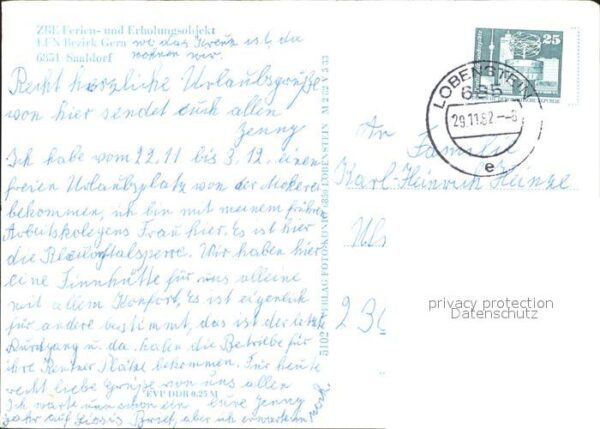 ZBE Ferien- und Erholungsobjekt
LEN Bezirk Gera wo das Kreuz ist, da
6851 Saaldorf wohnen wir.
Recht herzliche Urlaubsgrüße
von hier sendet euch allen
Jenny
Ich habe vom 22.11 bis 3.12. einen
freien Urlaubsplatz von der Mokerei
bekommen, ich bin mit meinem frühr
Arbeitskolegens Frau hier. Es ist hier
die Bleilochtalsperre. Wir haben hier
eine Finnhütte für uns alleine
mit allem Konfort, Es ist eigenlich
für andere bestimmt, das ist der letzte
Durchgang u. da haben die Betriebe für
ihre Rentner Plätze bekommen. Für heute
recht liebe Grüße von uns allen
eure Jenny
Ich warte nun schon ein
Jahr auf Brief, aber ich erwarte
EVP DDR 0,25 M
5102 VERLAG FOTO-KÖNIG 6850 LOBENSTEIN
25
LOBENSTEIN
685
29.11.82
e
An Familie
Karl-Heinrich Heinze
privacy protection
Datenschutz